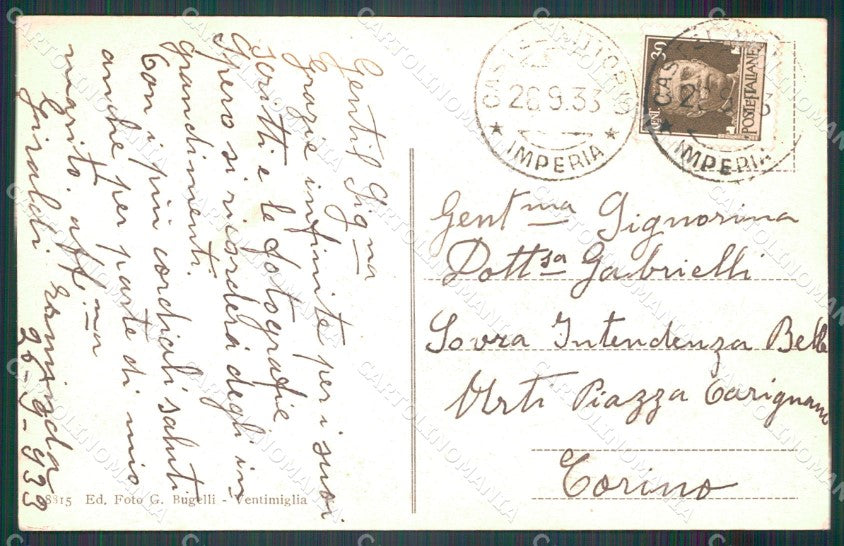 Gentil Sig.na
Grazie infinite per i suoi
scritti e le fotografie
Spero si ricorderà degli in
grandimenti.
Con i più cordiali saluti
anche per parte di mio
marito. aff.ma
Giraldi Erminda
26-9-933
8315 Ed. Foto G. Bugelli - Ventimiglia
CASTEL VITTORIO
26.9.33
IMPERIA
30
POSTE ITALIANE
CENT
CASTEL VITTORIO
26.9.33
IMPERIA
Gent ma Signorina
Dott sa Gabrielli
Sovra Intendenza Belle
Arti Piazza Carignano
Torino
CARTOLINOMANIA